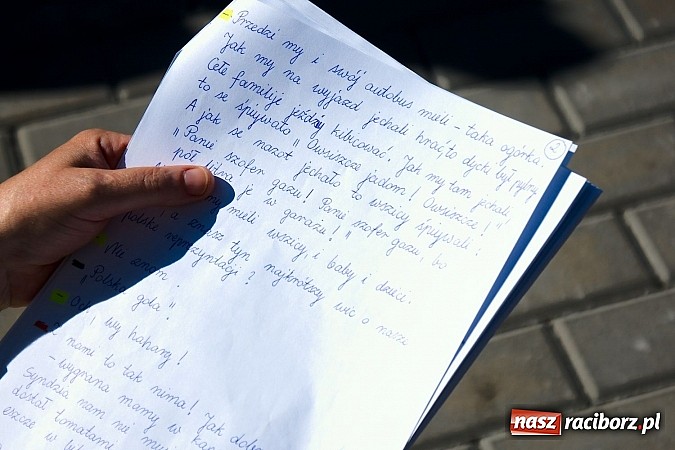 ②
- Przedzi my i swój autobus mieli - taka ogórka.
Jak my na wyjazd jechali hrać, to dycki był pylny.
Cełe familije jeździły kibicować. Jak my tam jechali
to se śpiywało "Owsiszcze jadom! Owsiszcze!"
A jak se nazot jechało to wszicy śpiywali:
"Panie szofer gazu! Panie szofer gazu, bo
pół litra je w garażu!"
my mieli wszicy, i baby i dzieci.
a znosz tyn najkrótszy wic o naszi
polski reprezyntacji?
- Nie znom.
- "Polska gola"
wy hahary!
nami to tak nima! Jak
- wygrano mamy w
Syndzia nam nie
dostoł tomatami
eszcze w
nasz raciborz.pl